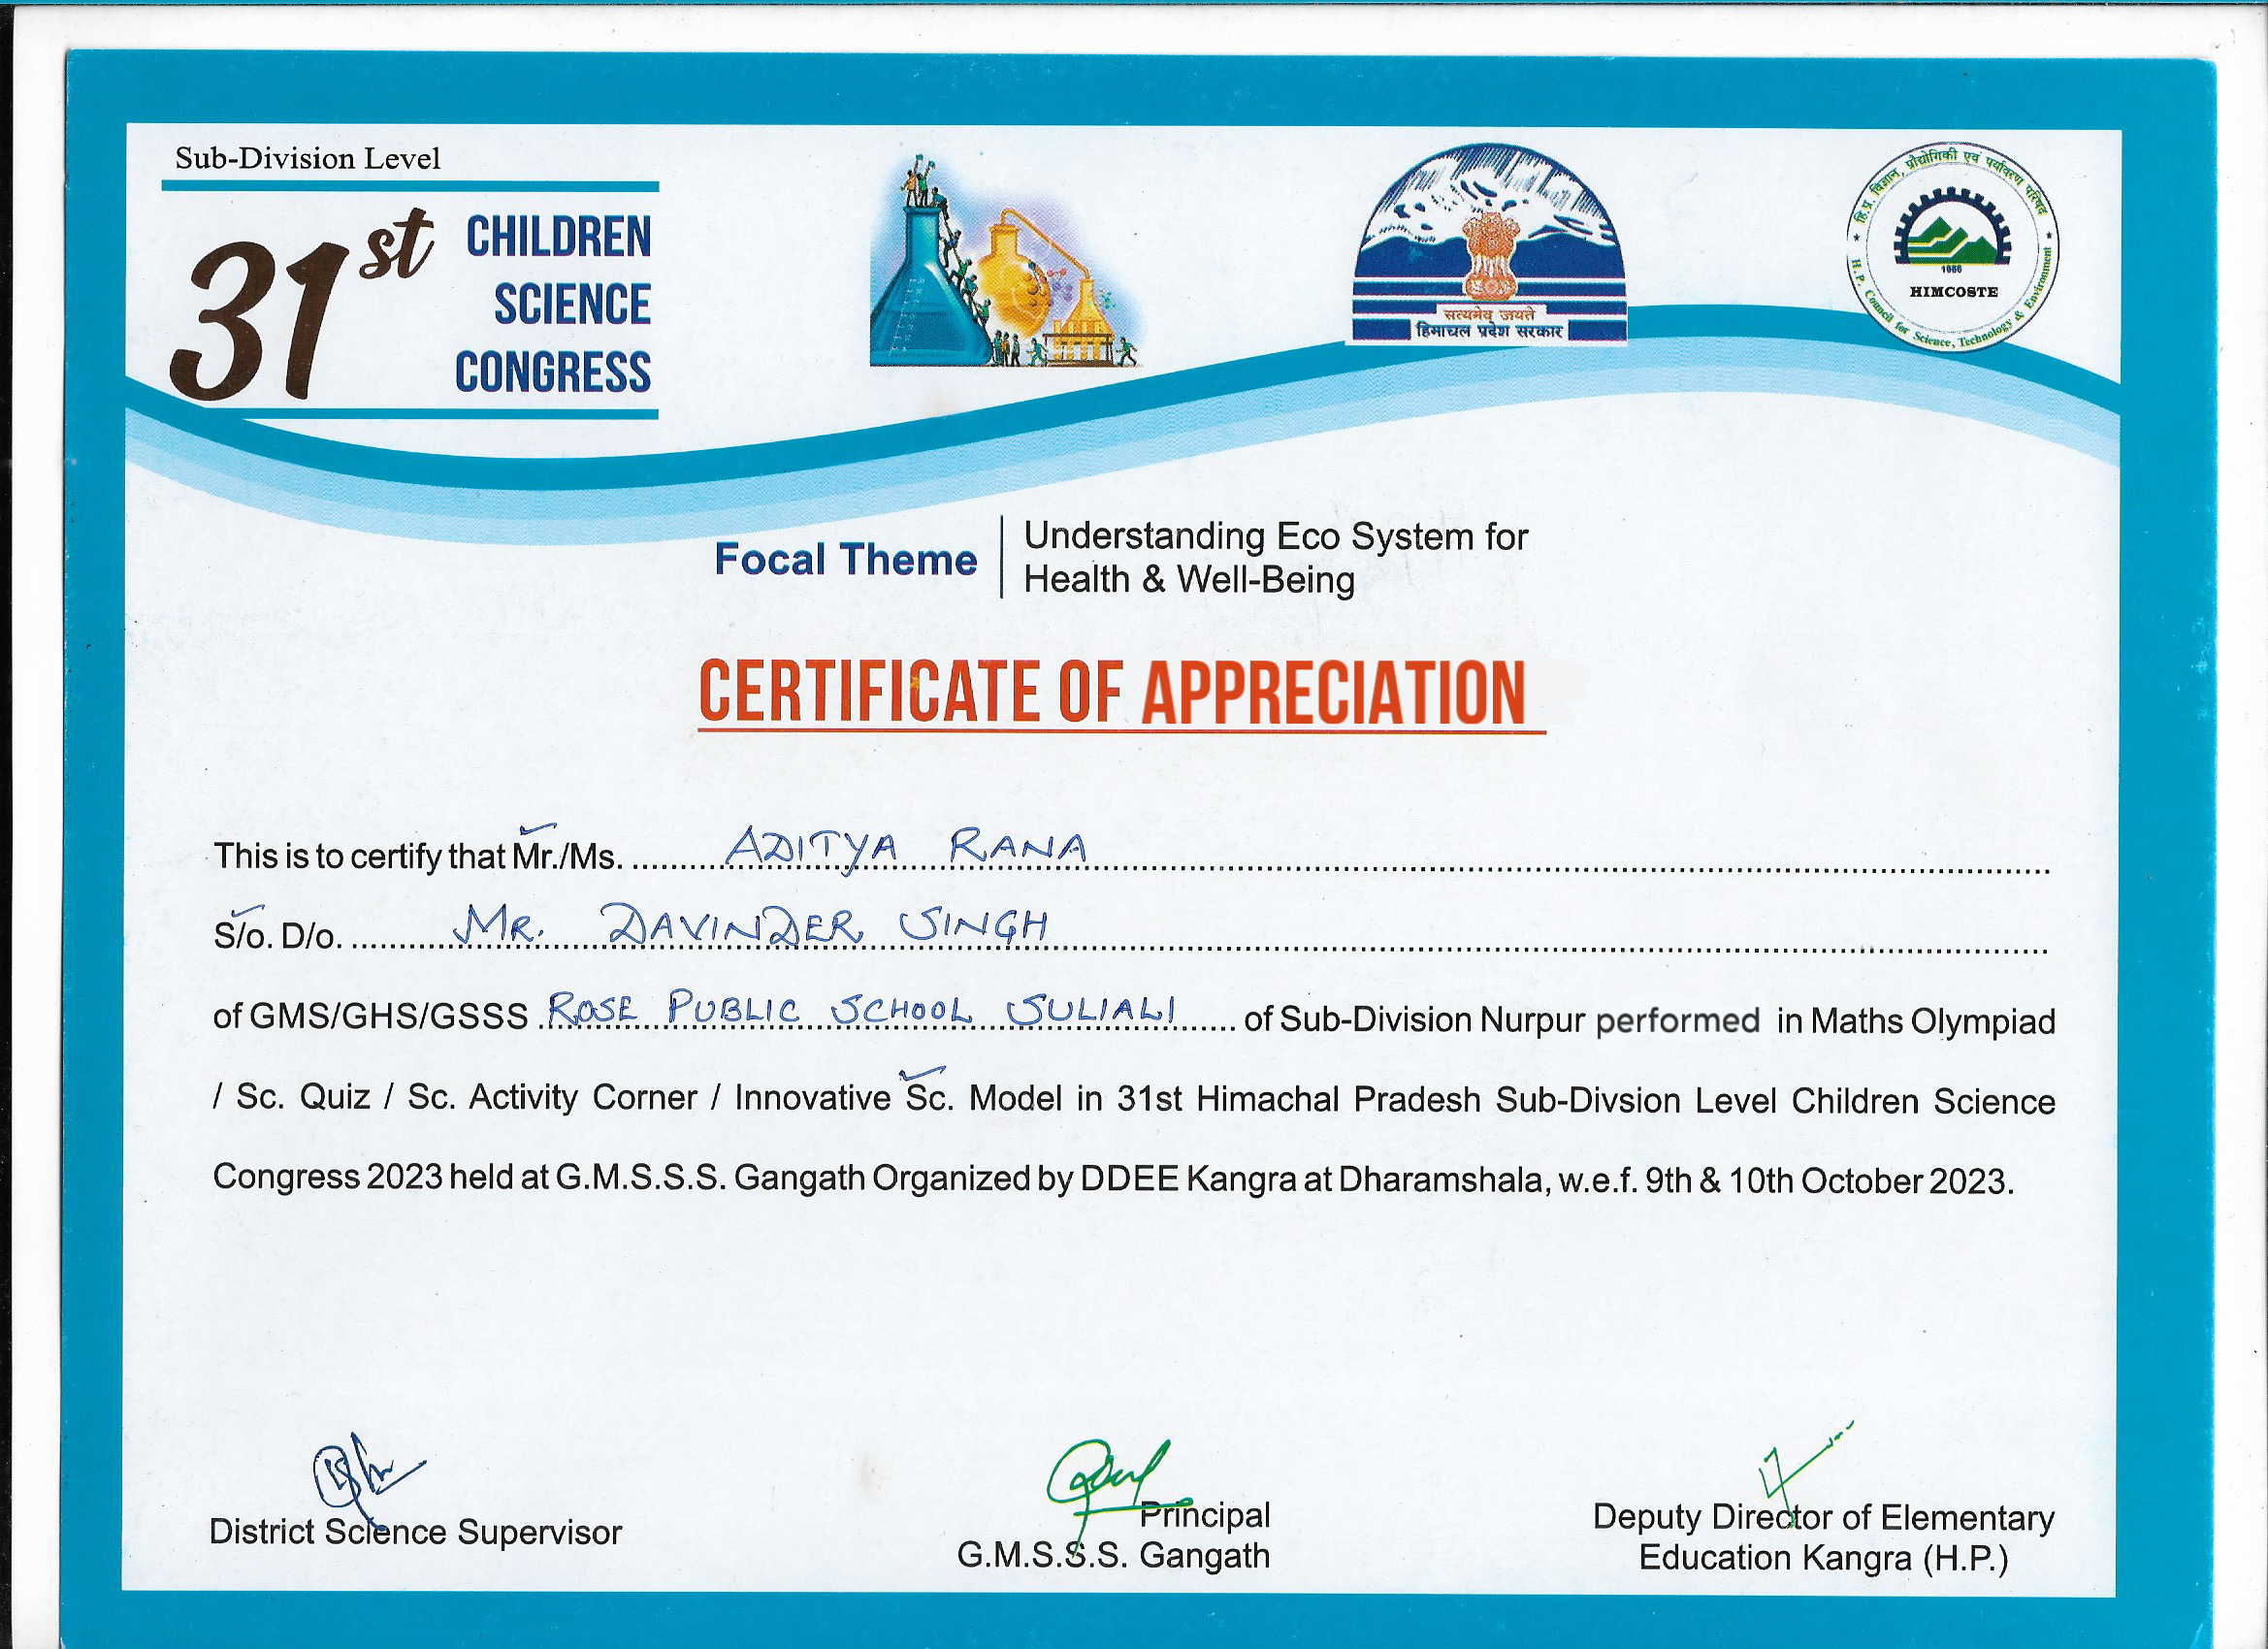 Sub-Division Level
31st CHILDREN
SCIENCE
CONGRESS
सत्यमेव जयते
हिमाचल प्रदेश सरकार
हि.प्र. विज्ञान, प्रौद्योगिकी एवं पर्यावरण परिषद
1986
HIMCOSTE
H.P. Council for Science, Technology & Environment
Focal Theme
Understanding Eco System for
Health & Well-Being
CERTIFICATE OF APPRECIATION
This is to certify that Mr./Ms. ADITYA RANA
S/o. D/o. MR. DAVINDER SINGH
of GMS/GHS/GSSS ROSE PUBLIC SCHOOL SULIALI of Sub-Division Nurpur performed in Maths Olympiad
/ Sc. Quiz / Sc. Activity Corner / Innovative Sc. Model in 31st Himachal Pradesh Sub-Divsion Level Children Science
Congress 2023 held at G.M.S.S.S. Gangath Organized by DDEE Kangra at Dharamshala, w.e.f. 9th & 10th October 2023.
District Science Supervisor
Principal
G.M.S.S.S. Gangath
Deputy Director of Elementary
Education Kangra (H.P.)